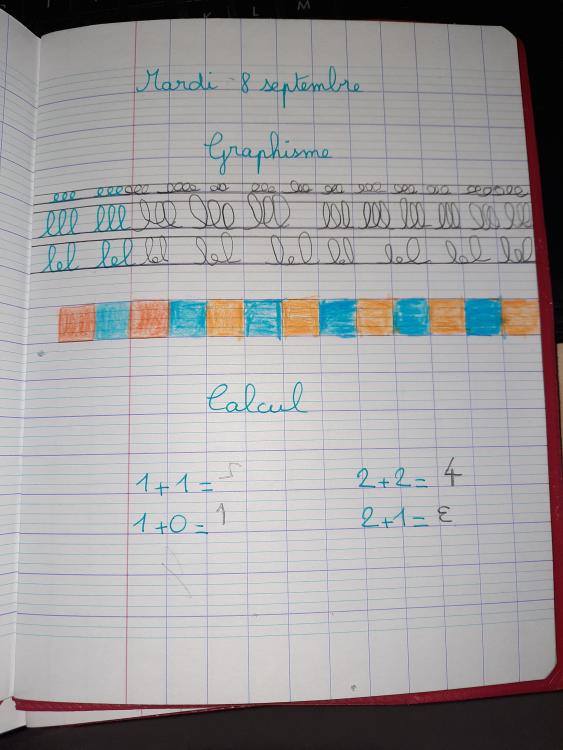 Mardi 8 septembre
Graphisme
eee eee eee eeee ee eee ee ee eee ee ee eeeeee
lll lll lll lll lll lll lll lll lll lll lll
lel lel lel lel lel lel lel lel lel
Calcul
1+1= 2+2= 4
1+0= 1 2+1= ε